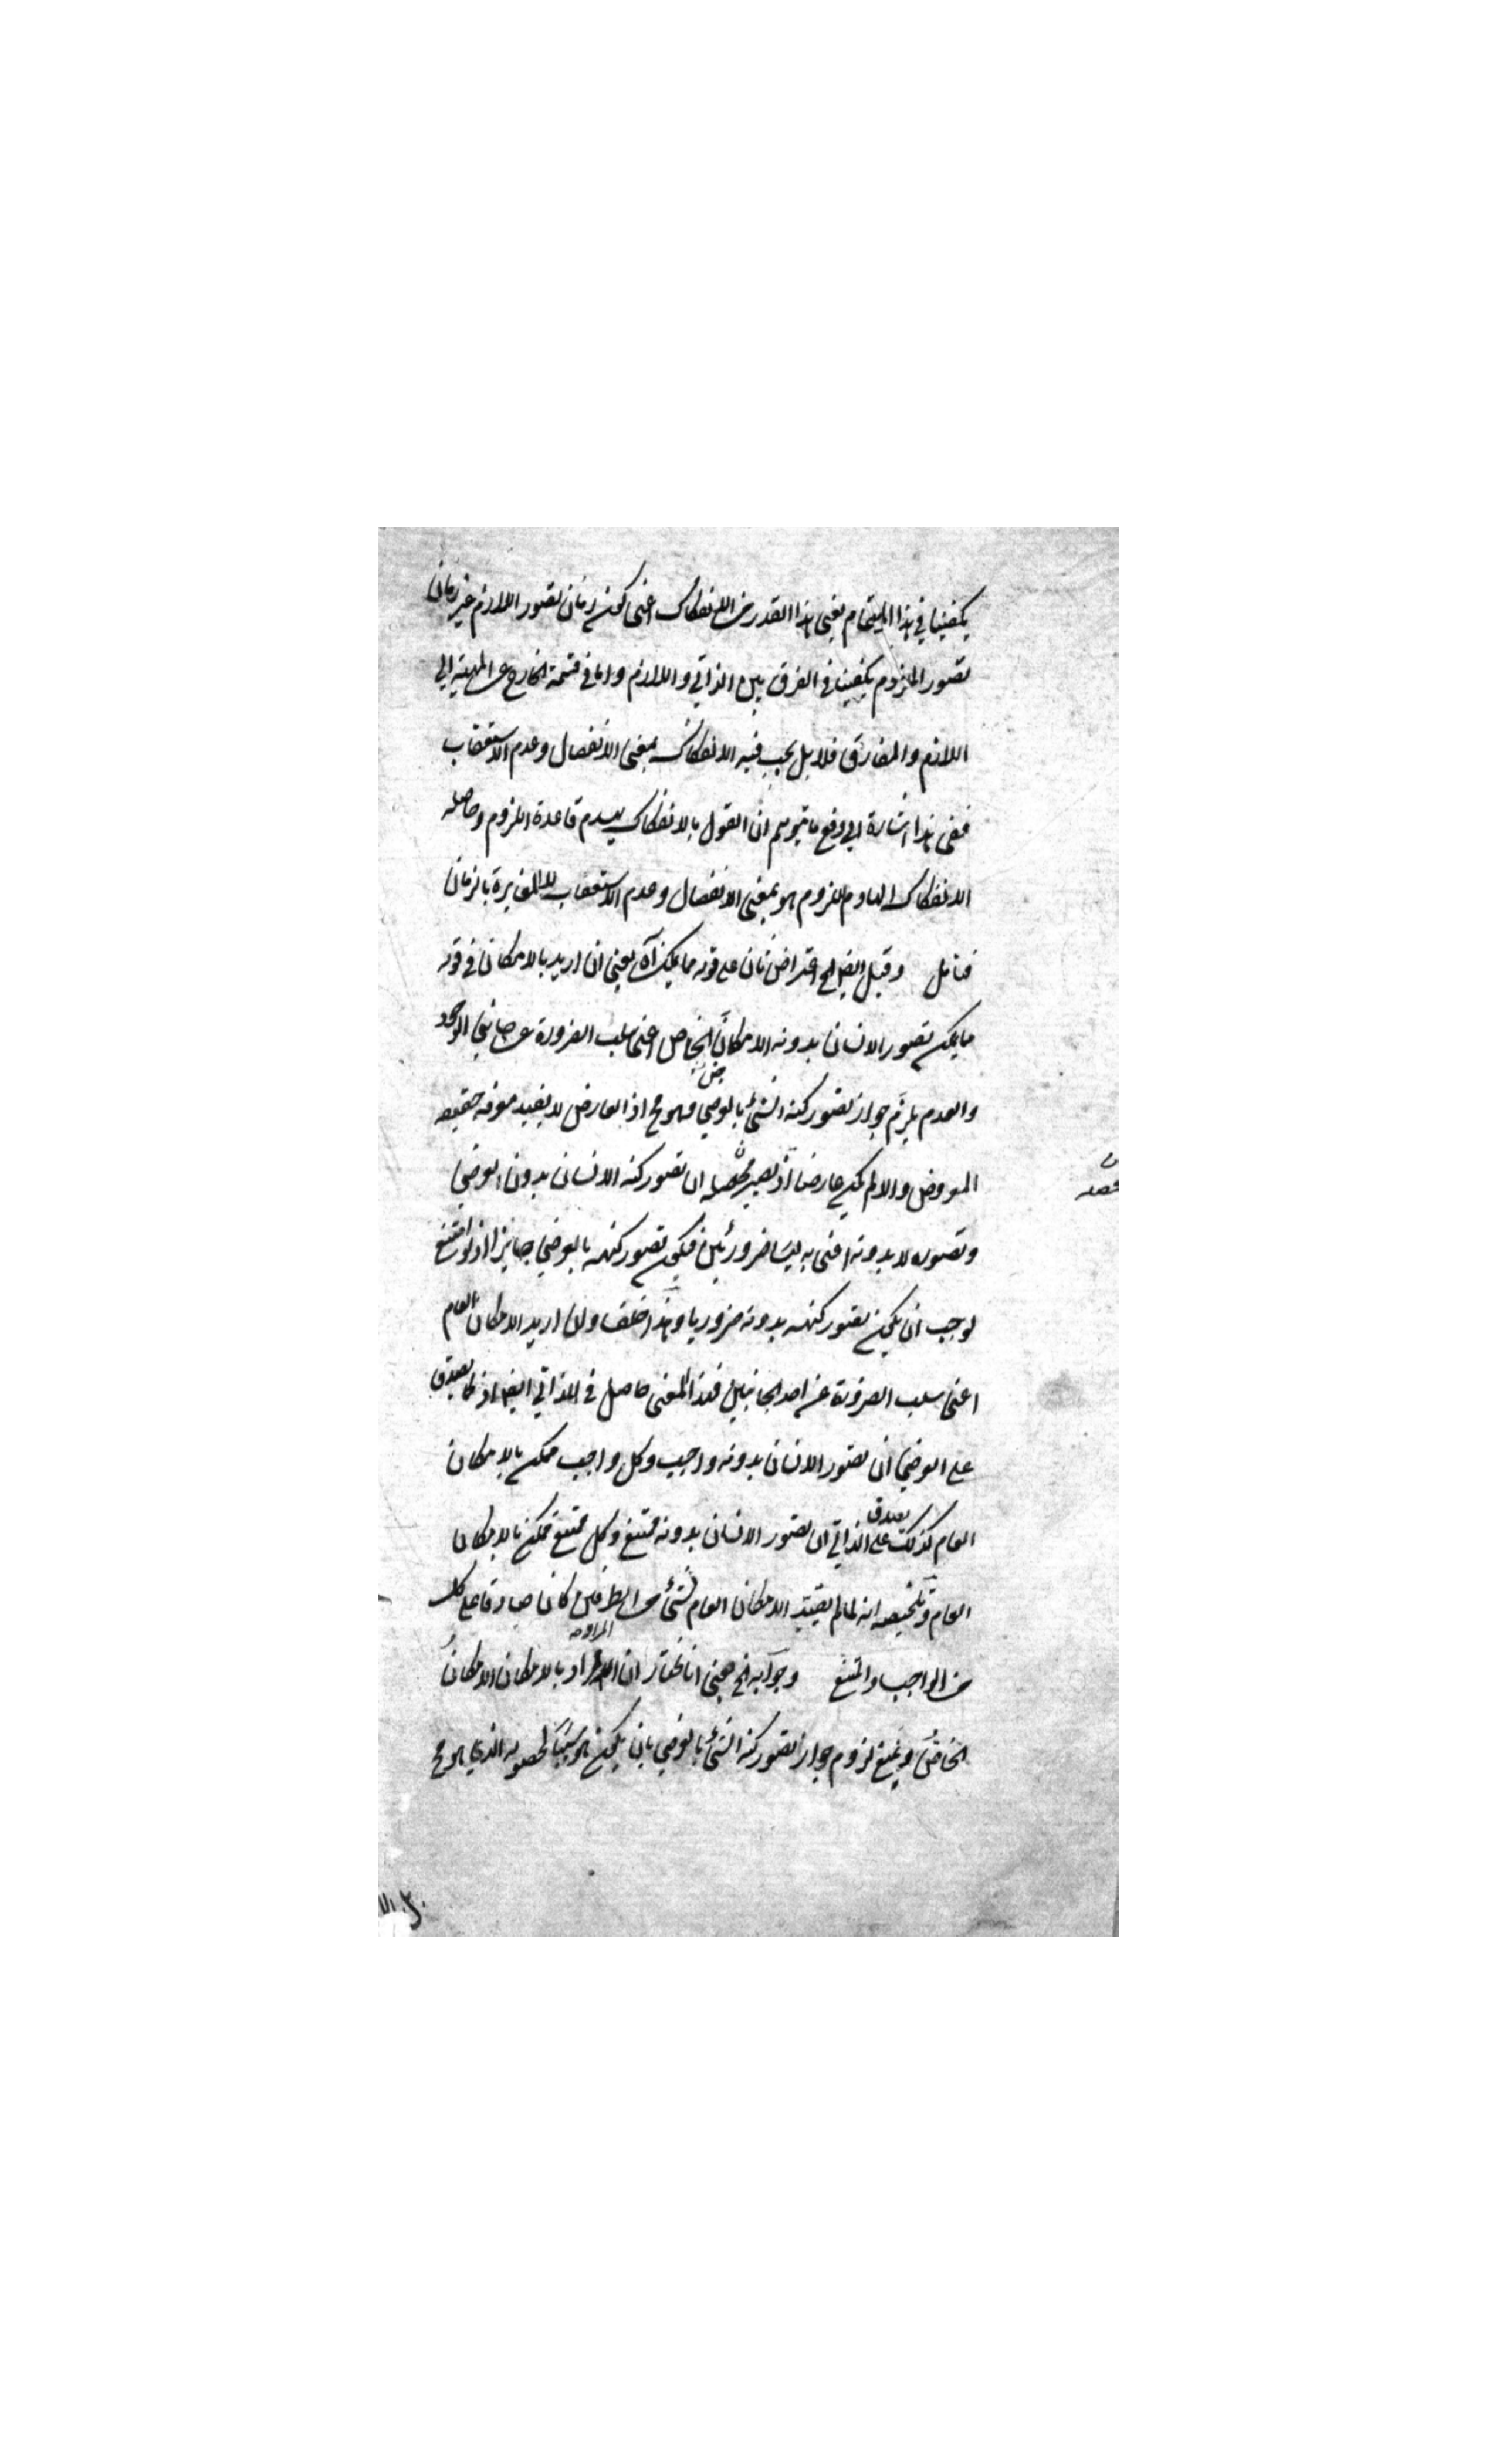 يكفينا في هذا المقام يعني هذا القدر من الانفكاك اعني كون زمان تصور اللازم غير زمان
تصور الملزوم يكفينا في الفرق بين الذاتي واللازم واما في قسمة الخارج عن المهية الي
اللازم والمفارق فلا بل يجب فيه الانفكاك بمعنى الانفصال وعدم الاستعقاب
ففي هذا اشارة الي دفع ما يتوهم ان القول بالانفكاك يهدم قاعدة اللزوم وحاصله
الانفكاك الهادم للزوم هو بمعنى الانفصال وعدم الاستعقاب لا المغايرة بالزمان
فتامل وقيل ايضا الخ اعتراض ثان على قوله ما يمكن آه يعني ان اريد بالامكان في قوله
ما يمكن تصور الانسان بدونه الامكان الخاص اعني سلب الضرورة عن جانبي الوجود
والعدم يلزم جواز تصور كنه الشئ بالعرضي وهو مح اذ العارض لا يفيد معرفة حقيقة
المعروض والا لم يكن عارضا اذ يصير محصله ان تصور كنه الانسان بدون العرضي
وتصوره لا بدونه اعني به ليسا ضروريين فيكون تصور كنهه بالعرضي جايزا اذ لو امتنع
لوجب ان يكون تصور كنهه بدونه ضروريا وهذا خلف وان اريد الامكان العام
اعني سلب الضرورة عن احد الجانبين فهذا المعنى حاصل في الذاتي ايضا اذ كما يصدق
على العرضي ان تصور الانسان بدونه واجب وكل واجب ممكن بالامكان
العام كذلك يصدق على الذاتي ان تصور الانسان بدونه ممتنع وكل ممتنع ممكن بالامكان
العام وتلخيصه انه لما لم يقيد الامكان العام بشئ من الطرفين كان صادقا على كل
من الواجب والممتنع وجوابه الخ يعني انا نختار ان المراد بالامكان الامكان
الخاص ونمنع لزوم جواز تصور كنه الشئ بالعرضي بان يكون هو سببا لحصوله الذي هو مح